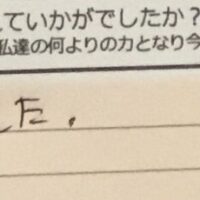 ていかがでしたか？
私達の何よりの力となり今
した．